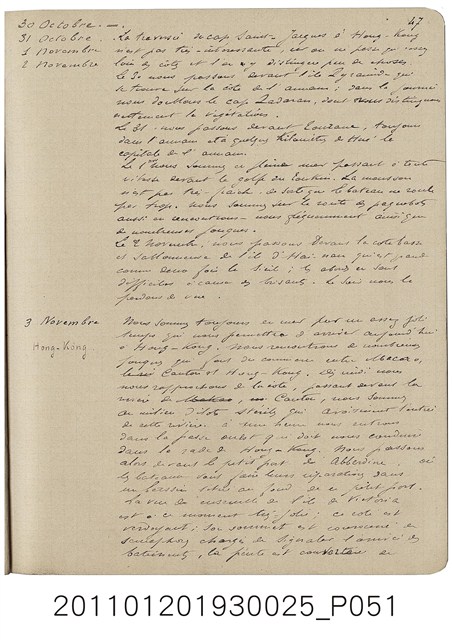 47
30 Octobre. —.
31 Octobre.
1 Novembre
2 Novembre
La traversée du cap Saint-Jacques à Hong-Kong
n'est pas très-intéressante, car on ne passe qu'assez
loin des côtes et l'on n'y distingue peu de choses.
Le 30 nous passons devant l'île Pyramide qui
se trouve sur la côte de l'annam; dans la journée
nous doublons le cap Padaran, dont nous distinguons
nettement la végétation.
Le 31 nous passons devant Tourane, toujours
dans l'annam et à quelques kilomètres de Hué la
capitale de l'annam.
Le 1er nous sommes en pleine mer passant à toute
vitesse devant le golfe du Tonkin. La mousson
n'est pas très-forte de sorte que le bateau ne roule
pas trop. Nous sommes sur la route des paquebots
aussi en rencontrons-nous fréquemment ainsi que
de nombreuses jonques.
Le 2 Novembre, nous passons devant la côte basse
et sablonneuse de l'île d'Haï-nan qui est grande
comme deux fois la Sicile; les abords en sont
difficiles à cause des brisants. Le soir nous la
perdons de vue.
3 Novembre
Hong-Kong
Nous sommes toujours en mer par un assez joli
temps qui nous permettra d'arriver aujourd'hui
à Hong-Kong. Nous rencontrons de nombreuses
jonques qui font du commerce entre Macao,
Canton et Hong-Kong. Dès midi nous
nous rapprochons de la côte, passant devant la
rivière de Canton, nous sommes
au milieu d'îlots stériles qui avoisinent l'entrée
de cette rivière. à une heure nous entrons
dans la passe ouest qui doit nous conduire
dans la rade de Hong-Kong. Nous passons
alors devant le petit port de Abberdine, où
les bateaux vont faire leurs réparations dans
un bassin situé au fond de ce petit port.
La vue d'ensemble de l'île de Victoria
est à ce moment très-jolie; ce côté est
verdoyant; son sommet est couronné de
sémaphores chargés de signaler l'arrivée des
bâtiments, la pente est couverte de
201101201930025_P051